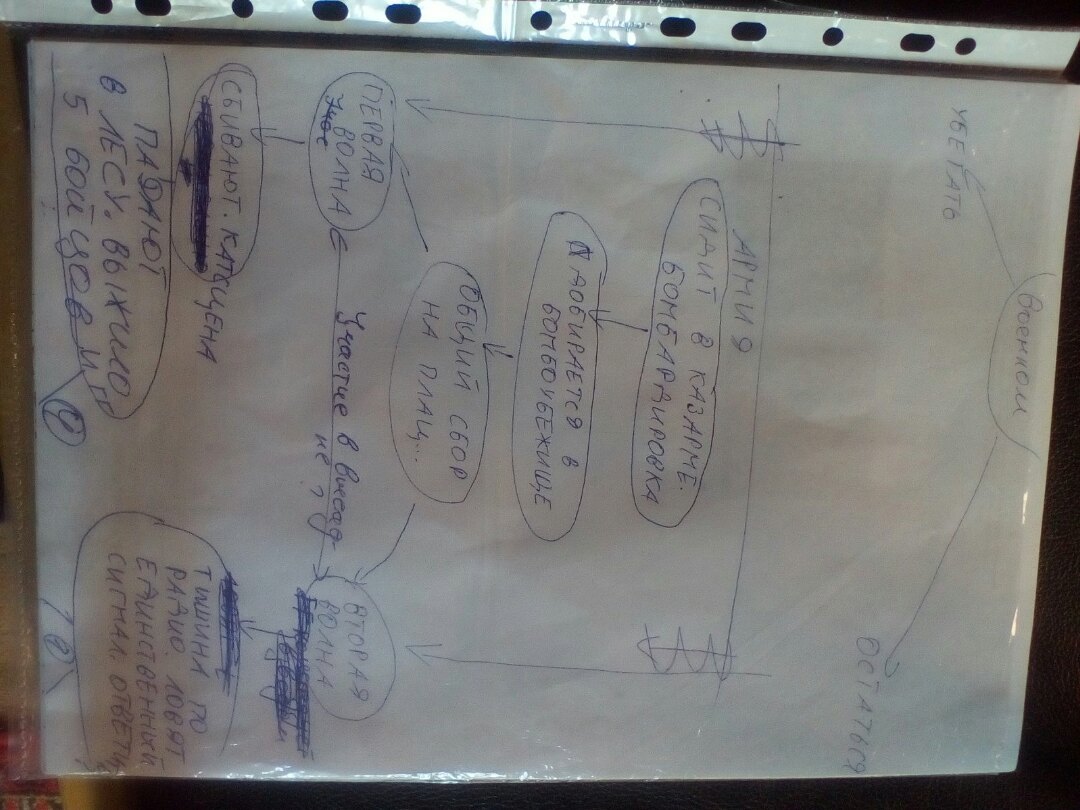 ВОЕНКОМ
УБЕГАТЬ
ОСТАТЬСЯ
АРМИЯ
СИДИТ В КАЗАРМЕ.
БОМБАРДИРОВКА
ДОБИРАЕТСЯ В
БОМБОУБЕЖИЩЕ
ОБЩИЙ СБОР
НА ПЛАЦ...
ПЕРВАЯ
ВОЛНА
Участие в
не?
ВТОРАЯ
ВОЛНА
СБИВАЮТ. КАТСЦЕНА
ПАДАЮТ
В ЛЕСУ. ВЫЖИЛО
5 БОЙЦОВ И ГГ
1
ТИШИНА ПО
РАДИО. ЛОВЯТ
ЕДИНСТВЕННЫЙ
СИГНАЛ. ОТВЕТИ
2